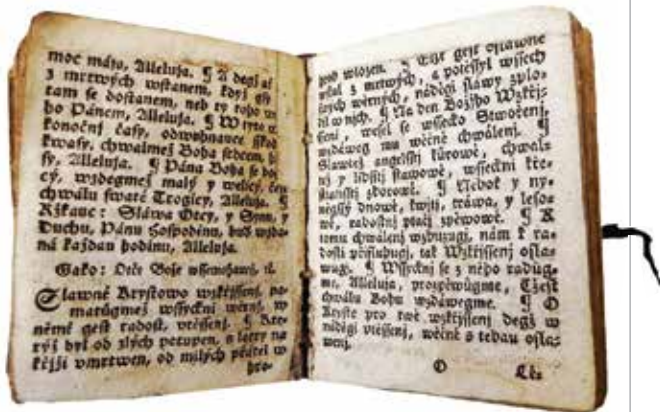 moc máʒo, Alleluja. ¶ A degž ať
z mrtwých wſtanem, když gſy
tam ſe doſtanem, neb ty toho
ho Pánem, Alleluja. ¶ W tyto
konočnj čaſy, odwohnauce
kwaſy, chwalmež Boha ſrdcem,
ſy, Alleluja. ¶ Pána Boha ſe
cý, wzdegmež malý y welicý,
chwálu ſwaté Trogicy, Alleluja. ¶
Ržkauc: Sláwa Otcy, y Synu, y
Duchu, Pánu Hoſpodinu, buď wzdá-
ná každau hodinu, Alleluja.
Gako: Otče Bože wſſemohaucý, ꝛc.
Slawné Kryſtowo wzkřjſſenj, pa-
matůgmež wſſyckni wěrnj, w
němž geſt radoſt, vtěſſenj. ¶ Kte-
rýž byl od zlých potupen, a letry na
křjži vmrtwen, od milých přátel w
hro-
hrob wložen. ¶ Týž geſt oſlawne
wſtal z mrtwých, a potěſſyl wſſech
ſwých wěrných, náděgi ſláwy zplo-
dil w nich. ¶ Na den Božjho Wzkřjſ-
ſenj, weſel ſe wſſecko Stwořenj,
wzdáweg mu wěčné chwálenj. ¶
Slawtež angelſſtj kůrowé, chwal-
tež y lidſſtj ſtawowé, wſſeckni kře-
ſťanſſtj zborowé. ¶ Nebok y ny-
něgſſý dnowé, kwjtj, tráwa, y leſo-
wé, radoſtnj ptačj zpěwowé. ¶ K
tomu chwálenj wzbuzugj, nám k ra-
doſti přiſluhugj, tak Wzkřjſſenj oſla-
wugj. ¶ Wſſyckni ſe z něho radůg-
me, Alleluja, proſpěwůgme, Čzeſt
chwálu Bohu wzdáwegme. ¶ O
Kryſte pro twé wzkřjſſenj degž w
náděgi vtěſſenj, wěčné s tebau oſla-
wenj.
O Čě-